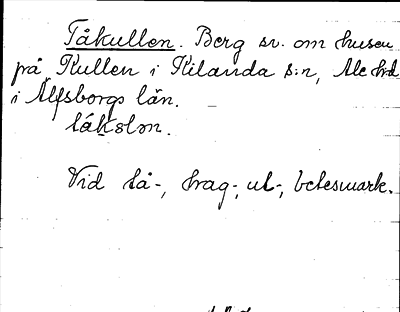 Tåkullen. Berg sv. om husen
på Kullen i Kilanda s:n, Ale hd
i Älfsborgs län.
Vid tå-, trag-, ut-, betesmark.